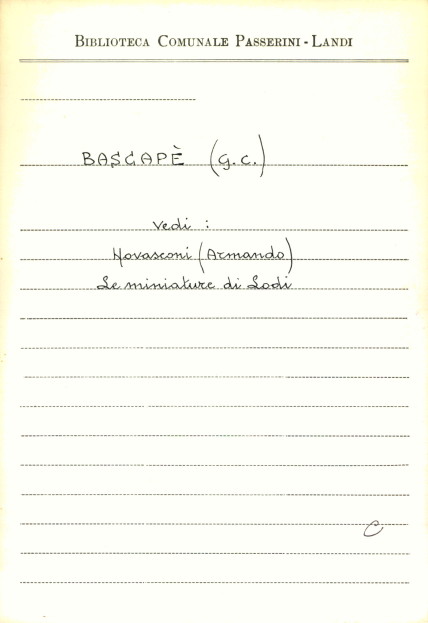 BIBLIOTECA COMUNALE PASSERINI - LANDI
BASCAPÈ (G.C.)
vedi :
Novasconi (Armando)
Le miniature di Lodi
C